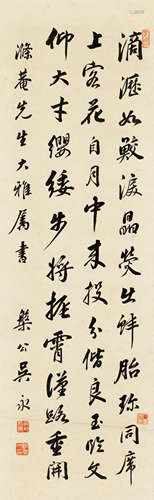 滴瀝如鮫淚晶熒出蚌胎珍同席
上客花自月中來投分偕良玉臨文
仰大才纓緌步將接霄漢路重開
滌菴先生大雅屬書
槃公吳永